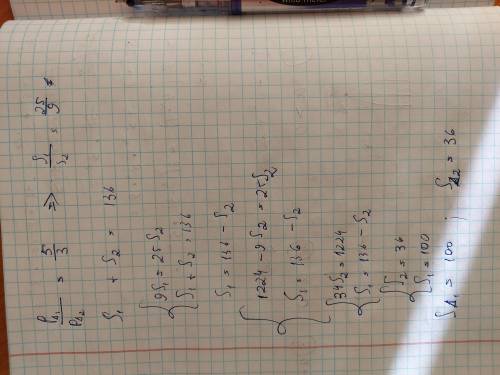 P△₁/P△₂ = 5/3 ⇒ S₁/S₂ = 25/9
S₁ + S₂ = 136
{ 9S₁ = 25S₂
S₁ + S₂ = 136
S₁ = 136 - S₂
{ 1224 - 9S₂ = 25S₂
S₁ = 136 - S₂
{ 34S₂ = 1224
S₁ = 136 - S₂
{ S₂ = 36
S₁ = 100
S△₁ = 100 ; S△₂ = 36